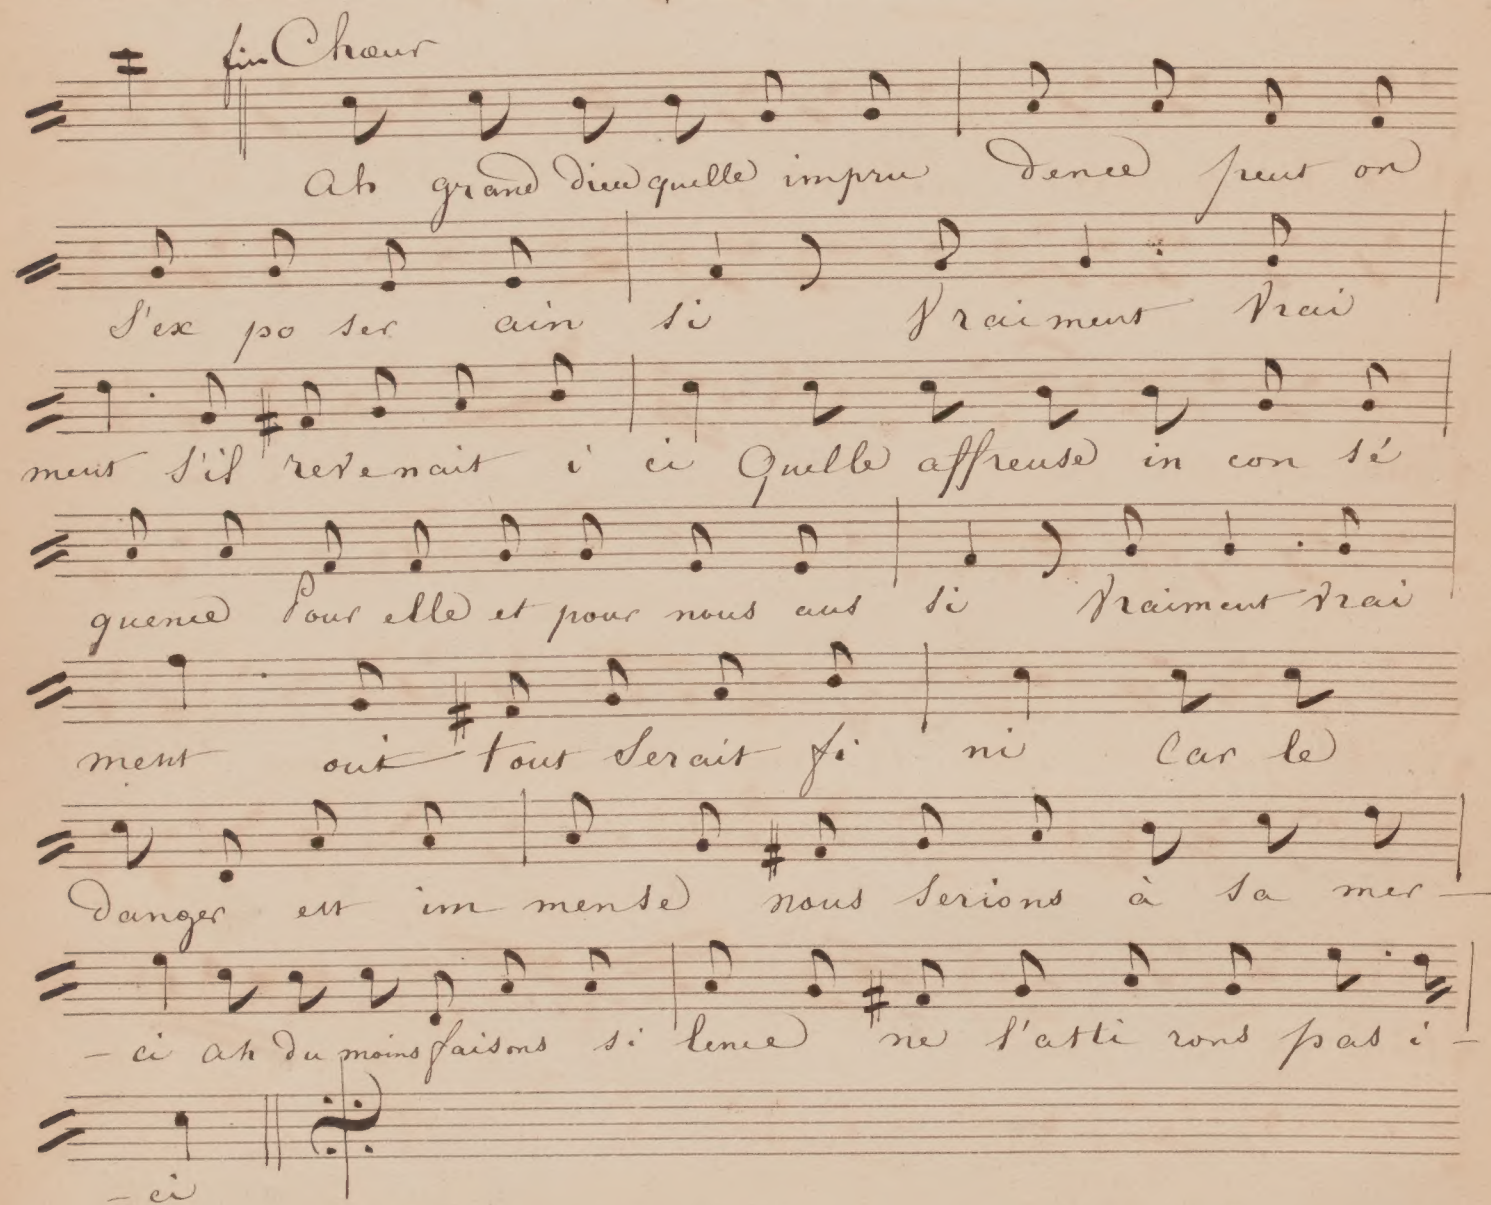 fin Chœur
Ah grand dieu quelle impru dence peut on
S'ex po ser ain si Vraiment Vrai
ment S'il revenait i ci Quelle affreuse in con sé
quence Pour elle et pour nous aus si Vraiment Vrai
ment oui tout Serait fi ni Car le
danger est im mense nous Serions à Sa mer -
- ci ah du moins faisons si lence ne l'atti rons pas i -
- ci